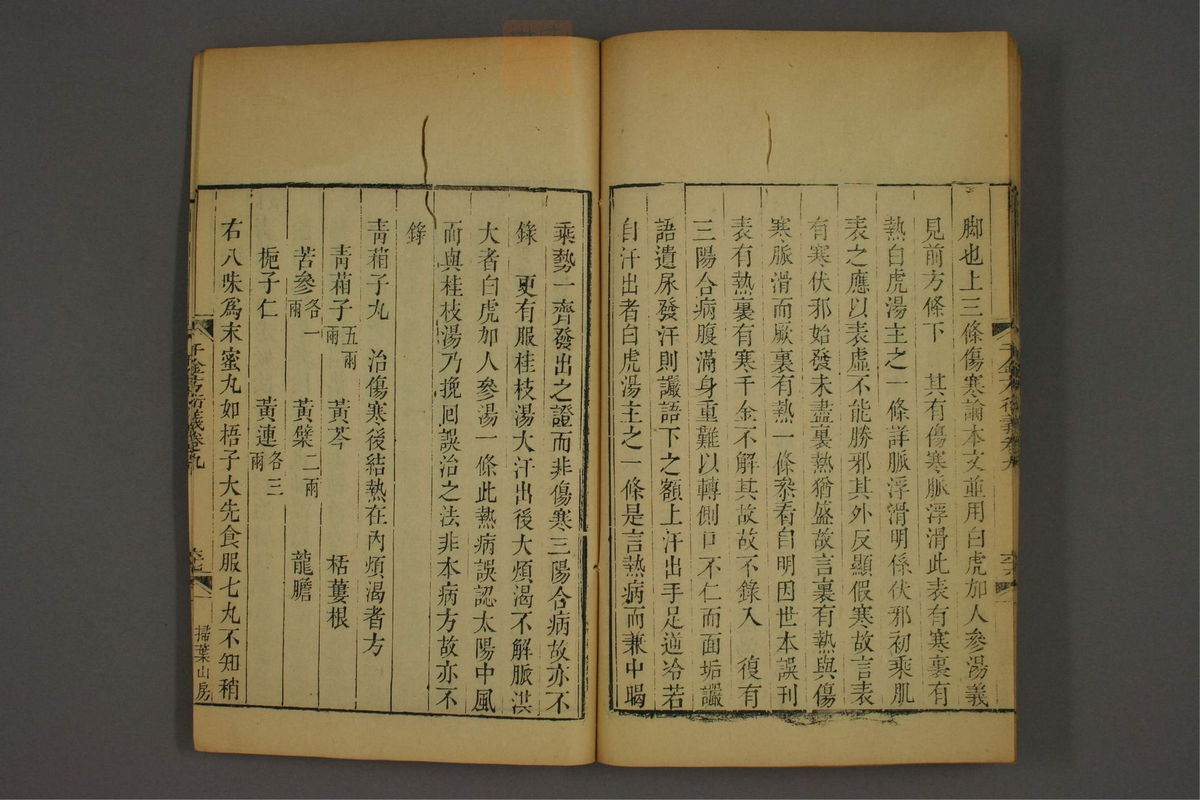 脚也上三條傷寒論本文並用白虎加人參湯義
見前方條下　其有傷寒脈浮滑此表有寒裏有
熱白虎湯主之一條詳脈浮滑明係伏邪初乘肌
表之應以表虛不能勝邪其外反顯假寒故言表
有寒伏邪始發未盡裏熱猶盛故言裏有熱與傷
寒脈滑而厥裏有熱一條叅看自明因世本誤刊
表有熱裏有寒千金不解其故故不錄入　復有
三陽合病腹滿身重難以轉側口不仁而面垢讝
語遺尿發汗則讝語下之額上汗出手足逆冷若
自汗出者白虎湯主之一條是言熱病而兼中暍
乘勢一齊發出之證而非傷寒三陽合病故亦不
錄　更有服桂枝湯大汗出後大煩渴不解脈洪
大者白虎加人參湯一條此熱病誤認太陽中風
而與桂枝湯乃挽囘誤治之法非本病方故亦不
錄
靑葙子丸　治傷寒後結熱在內煩渴者方
靑葙子五兩　黃芩　栝蔞根
苦參各一兩　黃檗二兩　龍膽
梔子仁　黃連各三兩
右八味爲末蜜丸如梧子大先食服七丸不知稍
千金方衍義卷九
掃葉山房